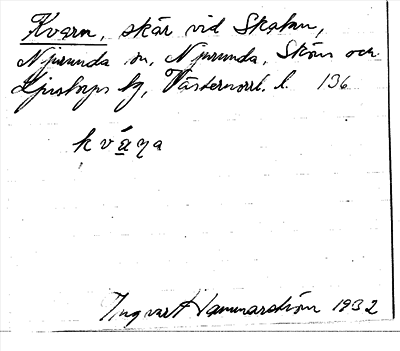 Kvarn, skär vid Skatan,
Njurunda sn, Njurunda, Sköns och
Ljustorps tg, Västernorrl. l. 136
kvāɳa
Ingvar Hammarström 1932